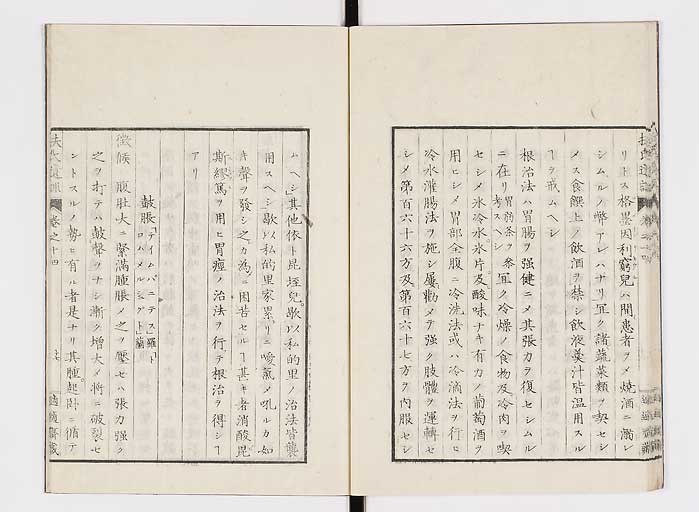 リトス格里因利窮兒ハ間患者ヲメ焼酒ニ溺シ
シムルノ幣アレハナリ宜ク諸蔬菜類ヲ喫セシ
メス食饌上ノ飲酒ヲ禁シ飲液羹汁皆温用スル
ヿヲ戒ムヘシ
根治法ハ胃腸ヲ强健ニメ其張力ヲ復セシムル
ニ在リ胃病条ヲ参考スヘシ宜ク冷燥ノ食物及冷肉ヲ喫
セシメ氷冷水氷片及酸味ナキ有力ノ葡萄酒ヲ
用ヒシメ胃部全腹ニ冷洗法或ハ冷滴法ヲ行ヒ
冷水灌腸法ヲ施シ屢勸メテ强ク肢體ヲ運轉セ
シメ第百六十六方及第百六十七方ヲ内服セシ
ムヘシ其他依卜昆垤兒歇以私的里ノ治法皆襲
用スヘシ歇以私的里家累リニ噯氣メ吼ルカ如
キ聲ヲ發シ之カ為ニ困苦セルヿ甚キ者消酸毘
斯繆篤ヲ用ヒ胃痙ノ治法ヲ行テ根治ヲ得シヿ
アリ
鼓脹「テイムパニテス」羅「トロムメルシュクト」蘭
徴候 腹肚大ニ緊滿腫脹メ之ヲ壓セハ張力强ク
之ヲ打テハ鼓聲ヲナシ漸ク增大メ將ニ破裂セ
ントスルノ勢ヒ有ル者是ナリ其腫起卧ニ循テ
扶氏遺訓 卷之十四